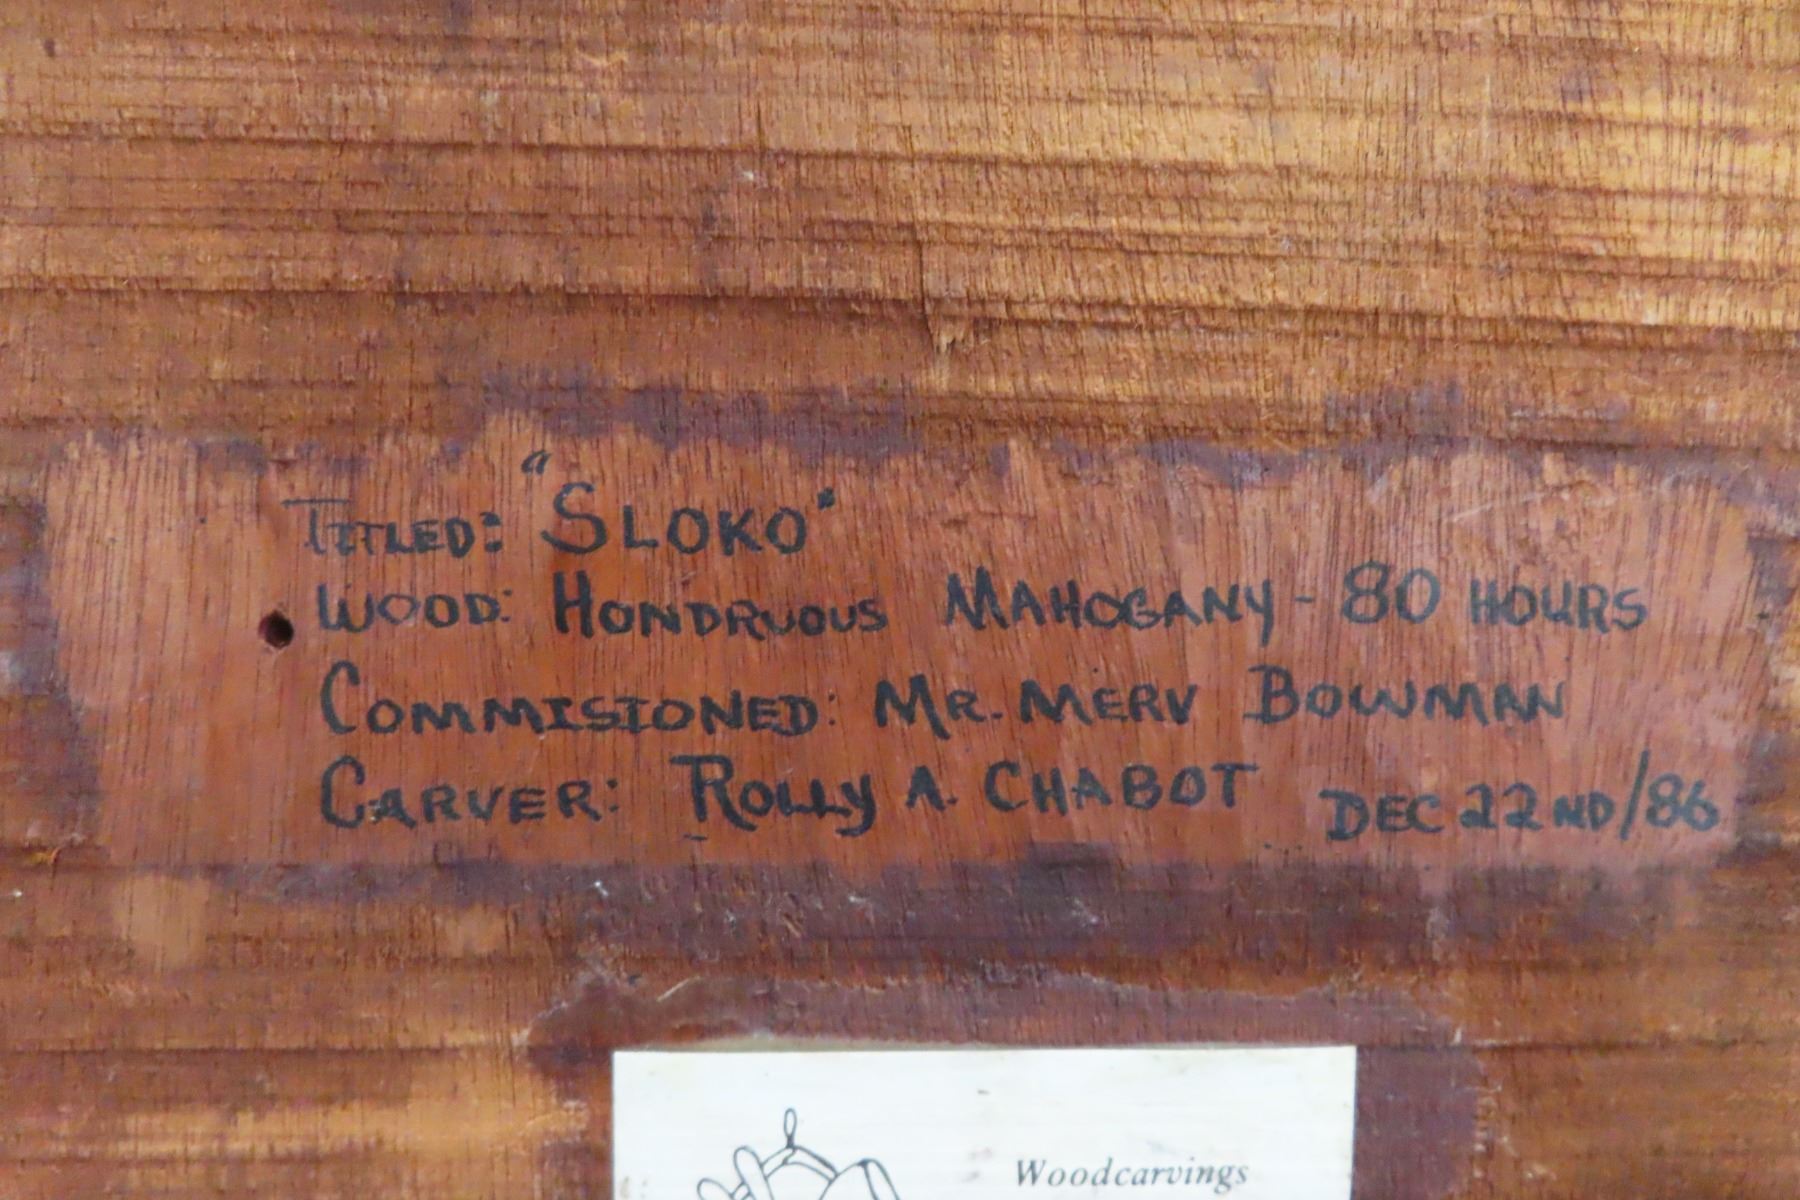 TITLED: "SLOKO"
WOOD: HONDRUOUS MAHOGANY - 80 HOURS
COMMISIONED: MR. MERV BOWMAN
CARVER: ROLLY A. CHABOT DEC 22ND/86
Woodcarvings